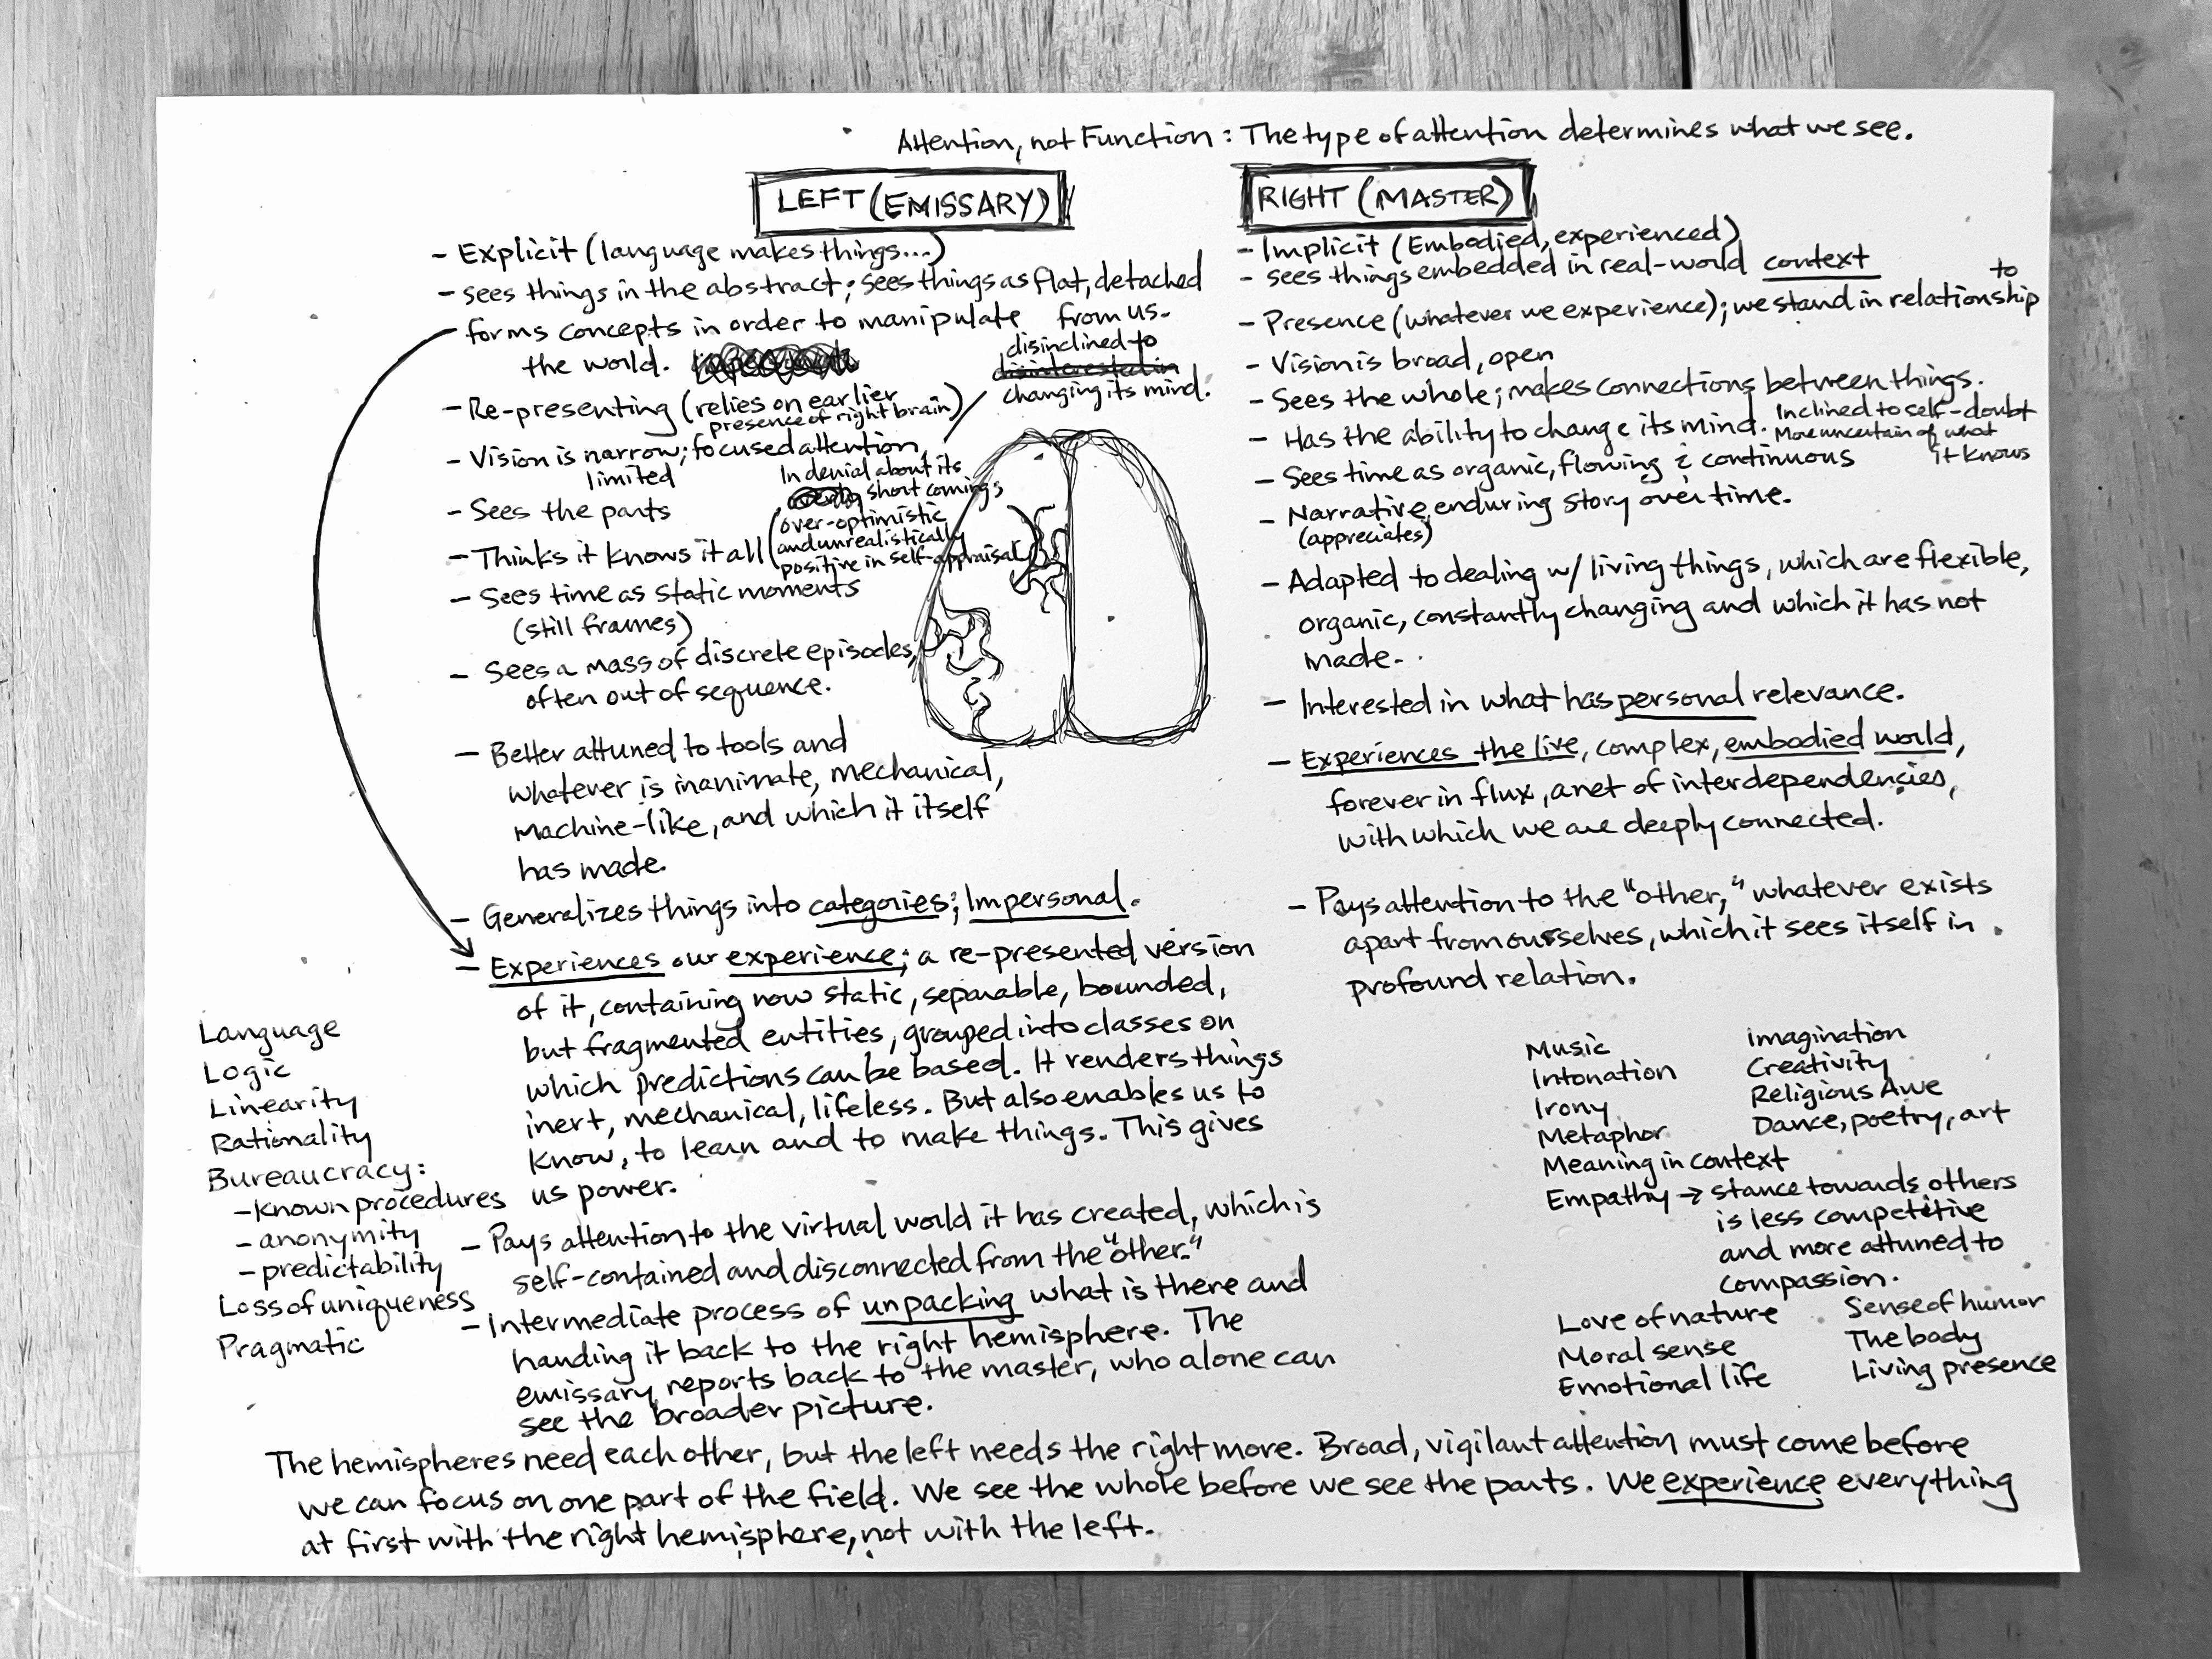 Attention, not Function: The type of attention determines what we see.
LEFT (EMISSARY)
- Explicit (language makes things...)
- sees things in the abstract; sees things as flat, detached
from us.
- forms concepts in order to manipulate
the world.
- Re-presenting (relies on earlier
presence of right brain)
- Vision is narrow; focused attention,
limited
disinclined to
disinterested in
changing its mind.
- Sees the parts
- Thinks it knows it all (
In denial about its
short comings
over-optimistic
and unrealistically
positive in self-appraisal)
- Sees time as static moments
(still frames)
- Sees a mass of discrete episodes,
often out of sequence.
- Better attuned to tools and
whatever is inanimate, mechanical,
machine-like, and which it itself
has made.
- Generalizes things into categories; Impersonal.
- Experiences our experience; a re-presented version
of it, containing now static, separable, bounded,
but fragmented entities, grouped into classes on
which predictions can be based. It renders things
inert, mechanical, lifeless. But also enables us to
know, to learn and to make things. This gives
us power.
- Pays attention to the virtual world it has created, which is
self-contained and disconnected from the "other."
- Intermediate process of unpacking what is there and
handing it back to the right hemisphere. The
emissary reports back to the master, who alone can
see the broader picture.
Language
Logic
Linearity
Rationality
Bureaucracy:
- known procedures
- anonymity
- predictability
Loss of uniqueness
Pragmatic
RIGHT (MASTER)
- Implicit (Embodied, experienced)
- sees things embedded in real-world context
- Presence (whatever we experience); we stand in relationship
to
- Vision is broad, open
- Sees the whole; makes connections between things.
- Has the ability to change its mind.
Inclined to self-doubt
More uncertain of what
it knows
- Sees time as organic, flowing & continuous
- Narrative, enduring story over time.
(appreciates)
- Adapted to dealing w/ living things, which are flexible,
organic, constantly changing and which it has not
made.
- Interested in what has personal relevance.
- Experiences the live, complex, embodied world,
forever in flux, a net of interdependencies,
with which we are deeply connected.
- Pays attention to the "other," whatever exists
apart from ourselves, which it sees itself in
profound relation.
Music
Intonation
Irony
Metaphor
Meaning in context
Imagination
Creativity
Religious Awe
Dance, poetry, art
Empathy → stance towards others
is less competitive
and more attuned to
compassion.
Love of nature
Moral sense
Emotional life
Sense of humor
The body
Living presence
The hemispheres need each other, but the left needs the right more. Broad, vigilant attention must come before
we can focus on one part of the field. We see the whole before we see the parts. We experience everything
at first with the right hemisphere, not with the left.